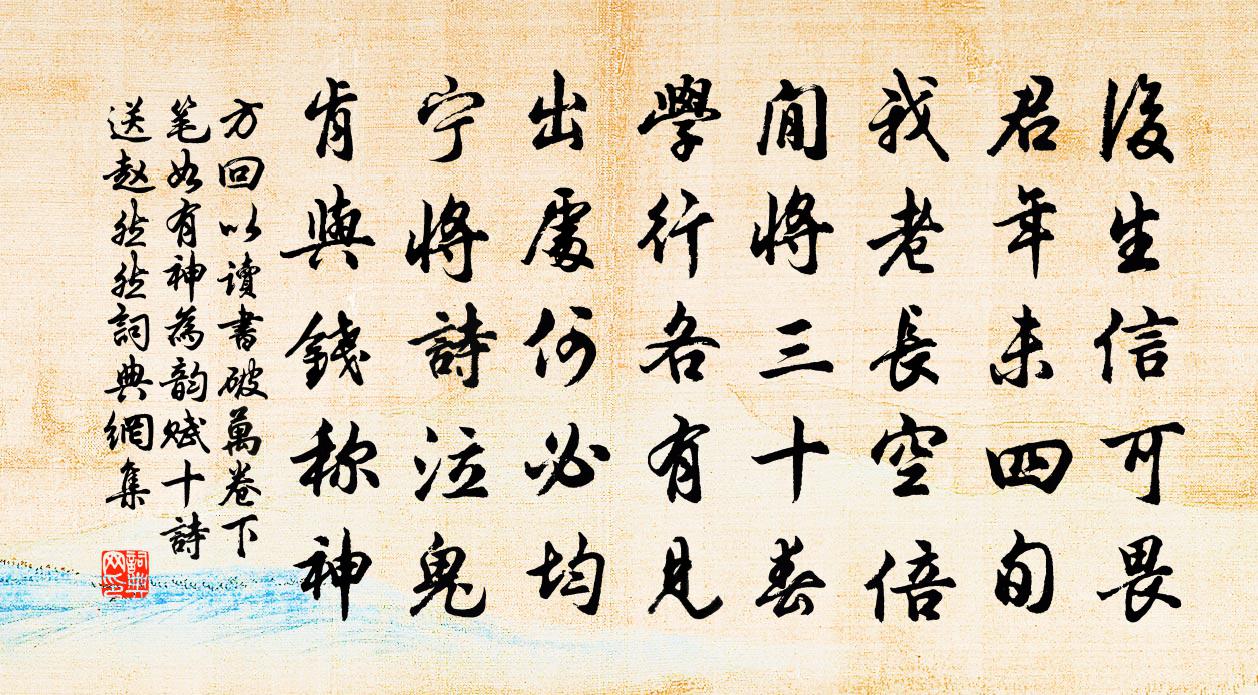 後生信可畏
君年未四旬
我老長空倍
閒將三十春
學行各有見
出處何必均
宁將詩泣鬼
肯與錢称神
方回以讀書破萬卷下
笔如有神為韵赋十詩
送赵然然詞典網集